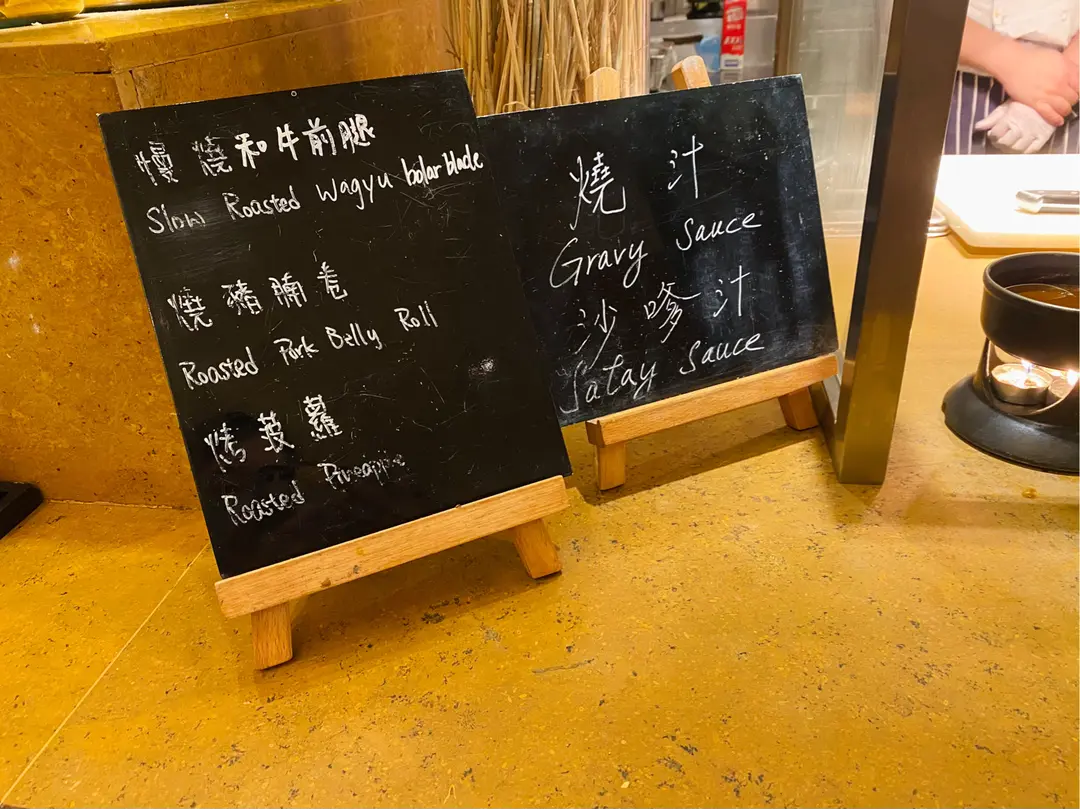 慢燒和牛前腿
Slow Roasted Wagyu bolar blade
燒豬腩卷
Roasted Pork Belly Roll
烤菠蘿
Roasted Pineapple
燒汁
Gravy Sauce
沙嗲汁
Satay Sauce